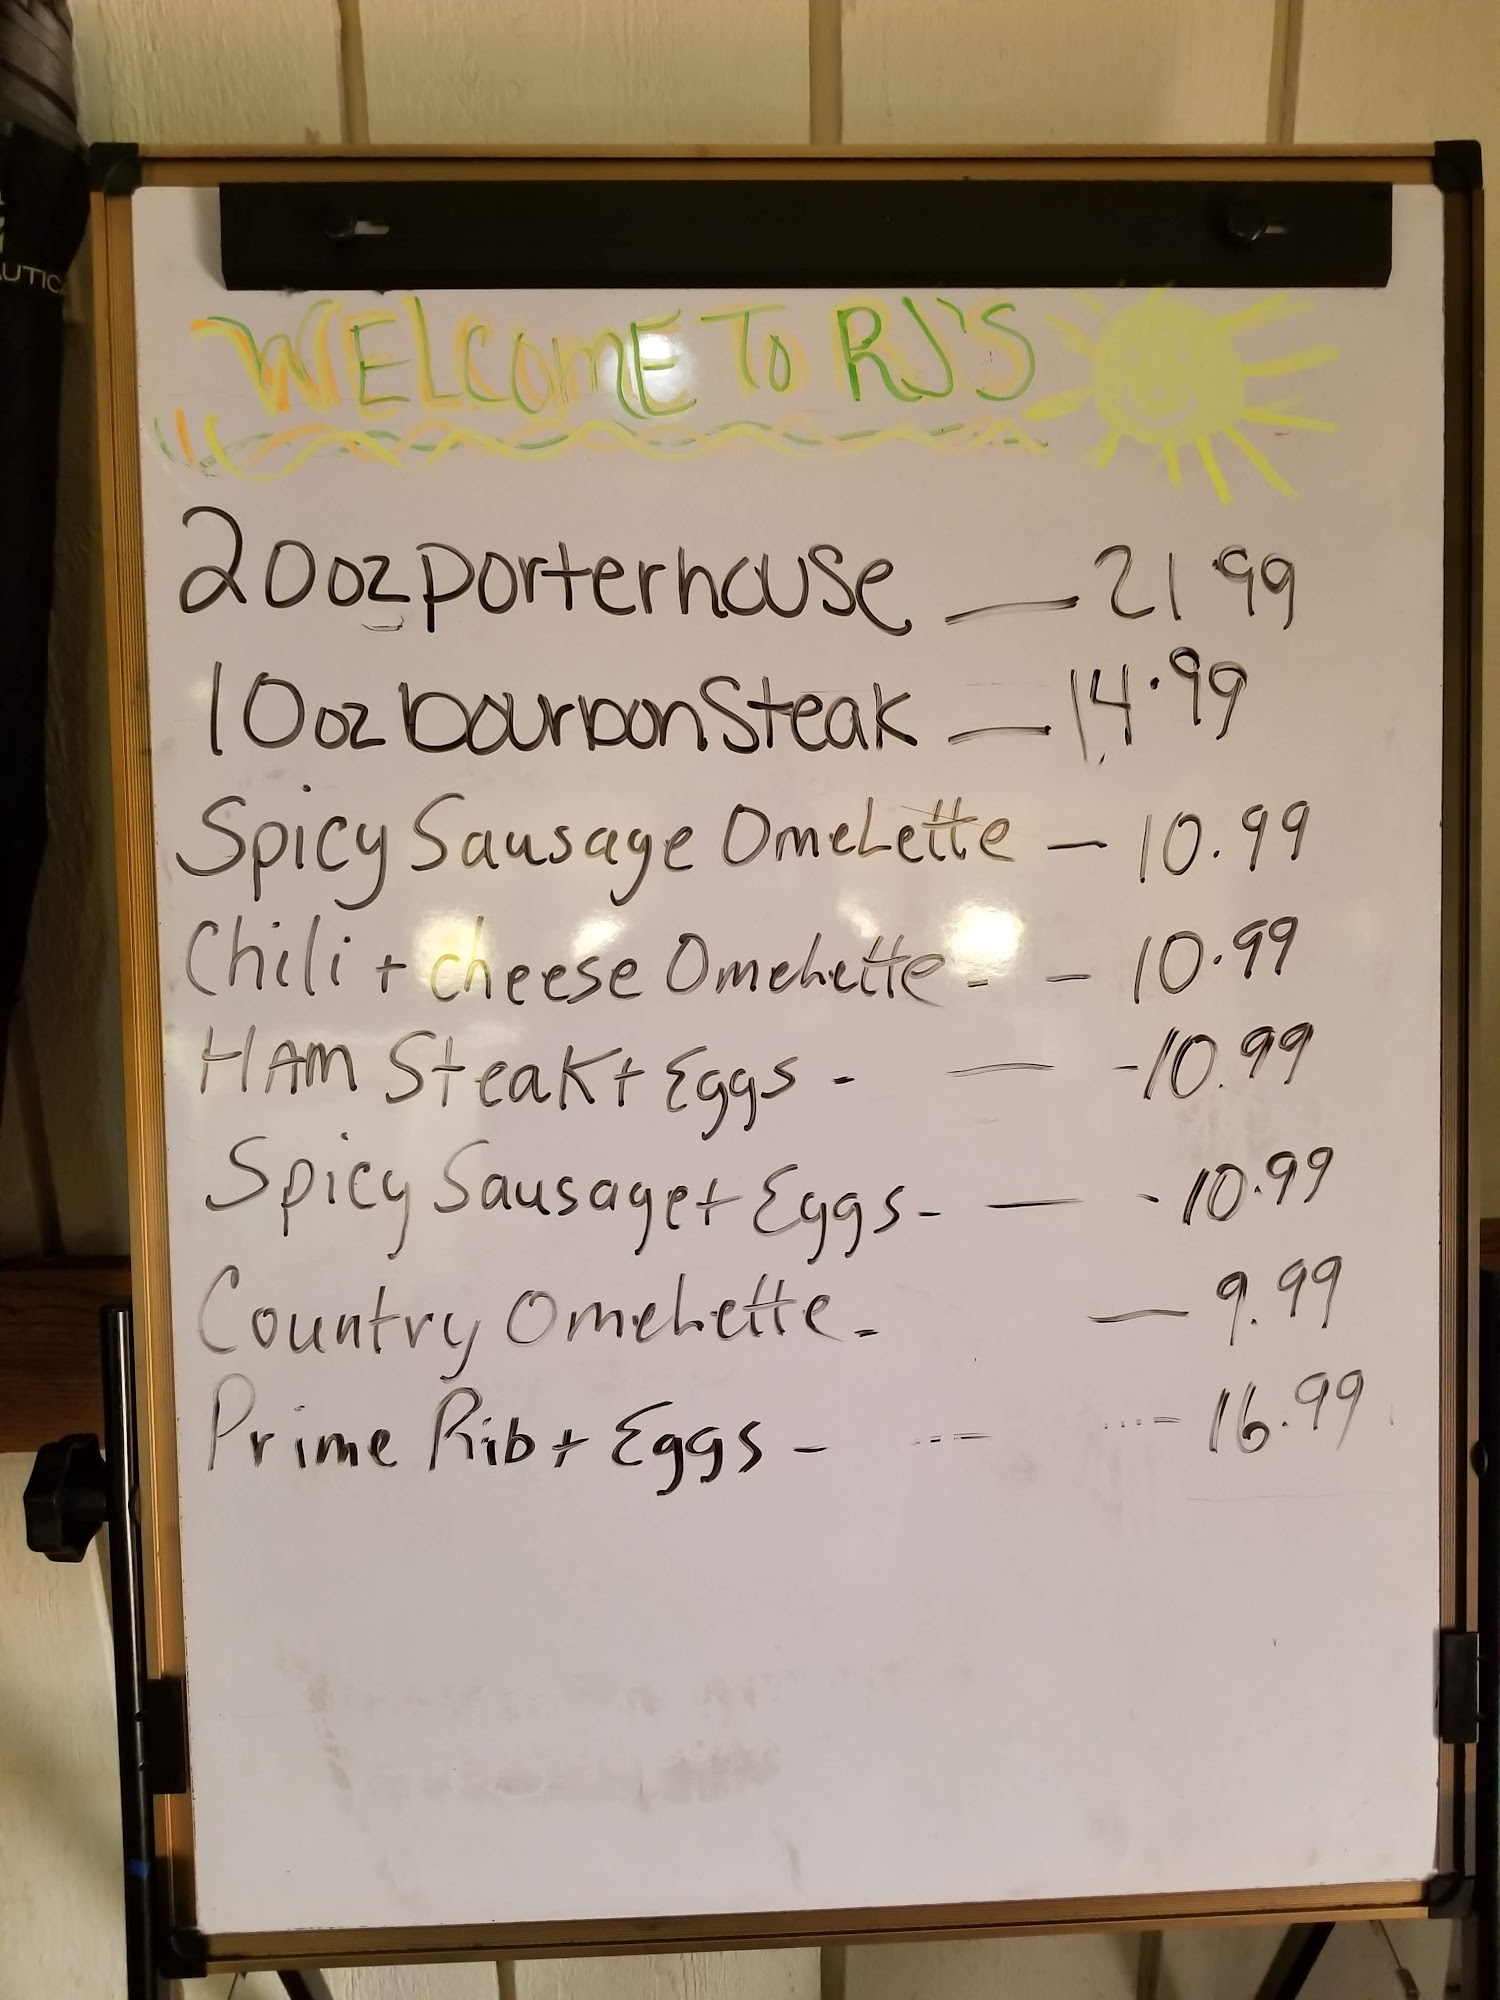 WELCOME TO RJ'S
20oz porterhouse — 21.99
10oz bourbon Steak — 14.99
Spicy Sausage OmeLette — 10.99
Chili + cheese OmeLette - - 10.99
HAM Steak + Eggs - — -10.99
Spicy Sausage + Eggs - — -10.99
Country OmeLette - — 9.99
Prime Rib + Eggs - --- ...- 16.99